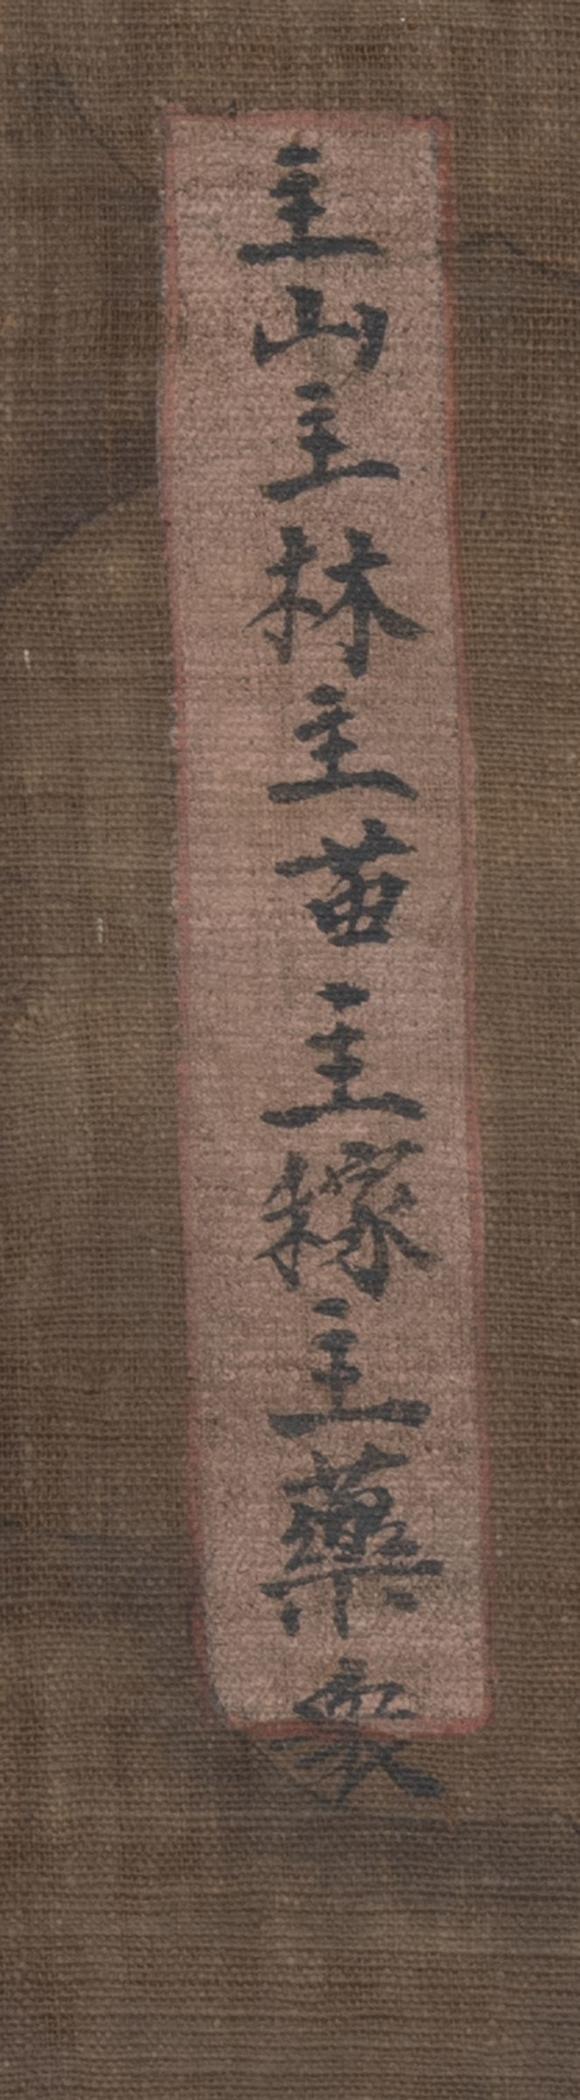 主山主林主苗主稼主藥衆